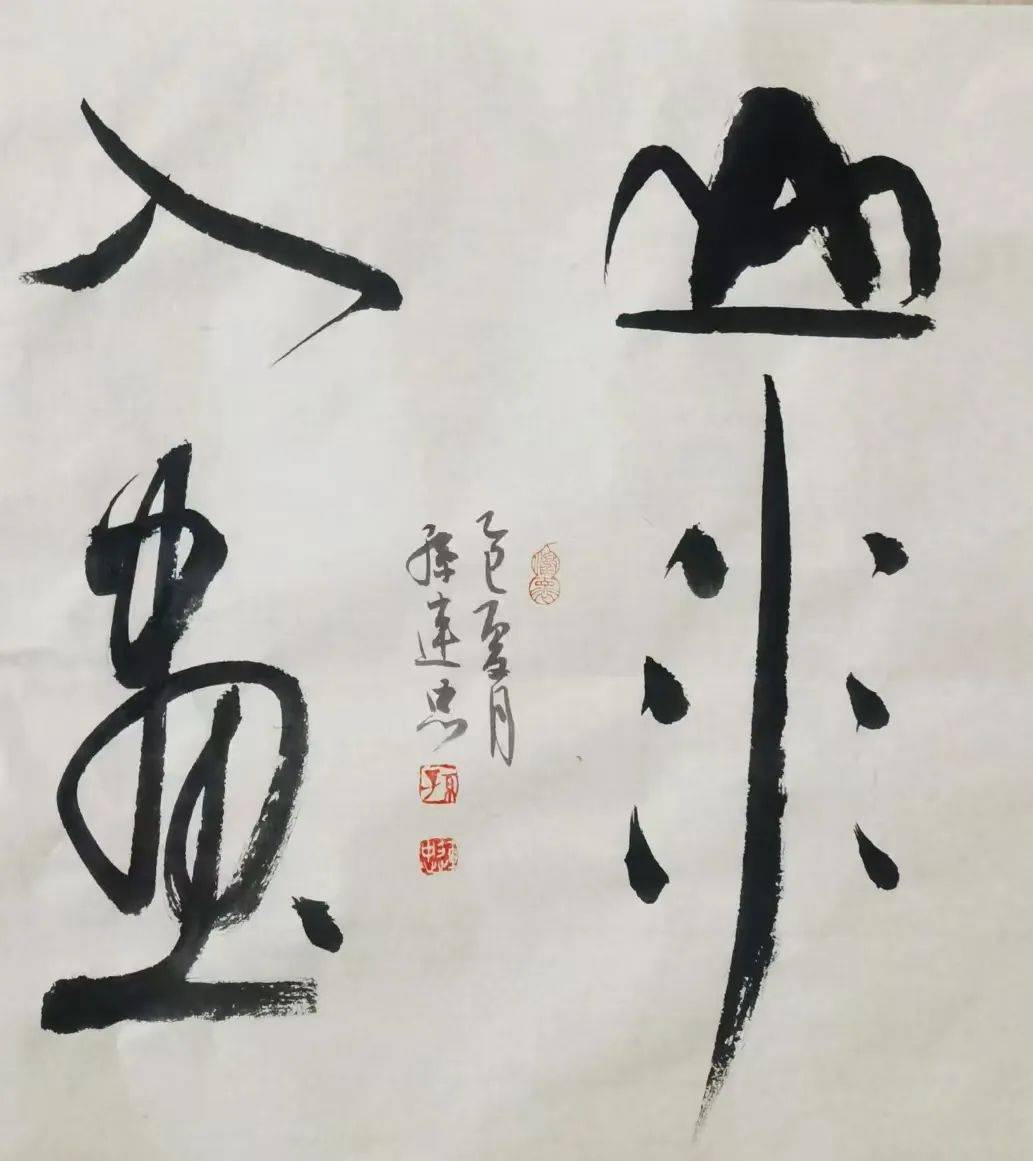 山水
入画
乙巳夏月
孫連忠